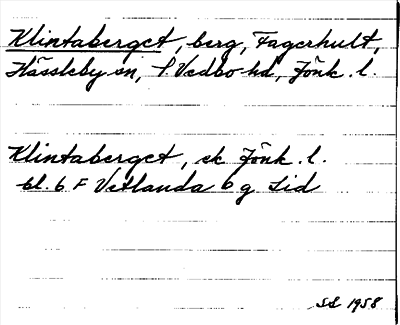 Klintaberget, berg, Fagerhult,
Hässleby sn, S. Vedbo hd, Jönk. l.
Klintaberget, ek Jönk. l.
bl. 6 F Vetlanda 6 g Lid
SS 1958